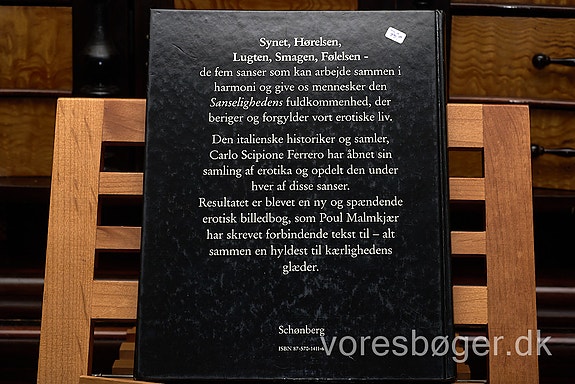 Synet, Hørelsen,
Lugten, Smagen, Følelsen -
de fem sanser som kan arbejde sammen i
harmoni og give os mennesker den
Sanselighedens fuldkommenhed, der
beriger og forgylder vort erotiske liv.
Den italienske historiker og samler,
Carlo Scipione Ferrero har åbnet sin
samling af erotika og opdelt den under
hver af disse sanser.
Resultatet er blevet en ny og spændende
erotisk billedbog, som Poul Malmkjær
har skrevet forbindende tekst til – alt
sammen en hyldest til kærlighedens
glæder.
Schønberg
ISBN 87-570-1411-
voresbøger.dk